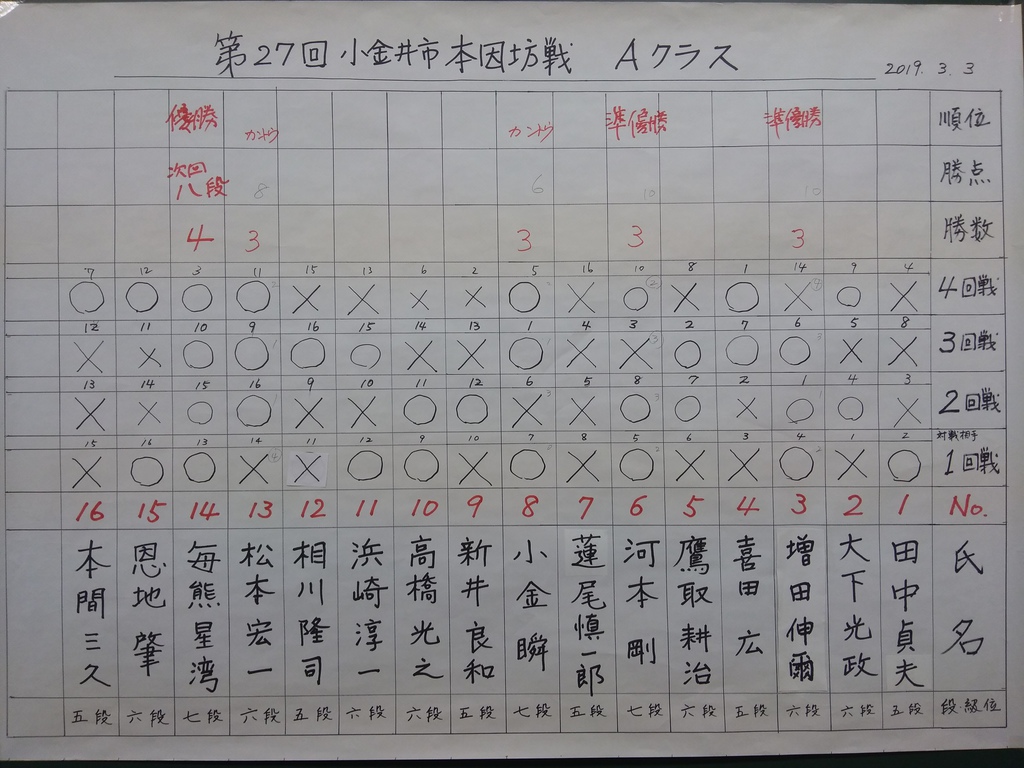 第27回 小金井市本因坊戦 Aクラス
2019. 3. 3
優勝 カントウ カントウ 準優勝 準優勝 順位
次回 八段 8 6 10 10 勝点
4 3 3 3 3 勝数
7 12 3 11 15 13 6 2 5 16 10 8 1 14 9 4
○ ○ ○ ○ × × × × ○ × ○ × ○ × ○ × 4回戦
12 11 10 9 16 15 14 13 1 4 3 2 7 6 5 8
× × ○ ○ ○ ○ × × ○ × × ○ ○ ○ × × 3回戦
13 14 15 16 9 10 11 12 6 5 8 7 2 1 4 3
× × ○ ○ × × ○ ○ × × ○ ○ × ○ ○ × 2回戦
15 16 13 14 11 12 9 10 7 8 5 6 3 4 1 2 対戦相手
× ○ ○ × × ○ ○ × ○ × ○ × × ○ × ○ 1回戦
16 15 14 13 12 11 10 9 8 7 6 5 4 3 2 1 No.
本間三久 恩地肇 毎熊星湾 松本宏一 相川隆司 浜崎淳一 高橋光之 新井良和 小金瞬 蓮尾慎一郎 河本剛 鷹取耕治 喜田広 増田伸爾 大下光政 田中貞夫 氏名
五段 六段 七段 六段 五段 六段 六段 五段 七段 五段 七段 六段 五段 六段 六段 五段 段・級位